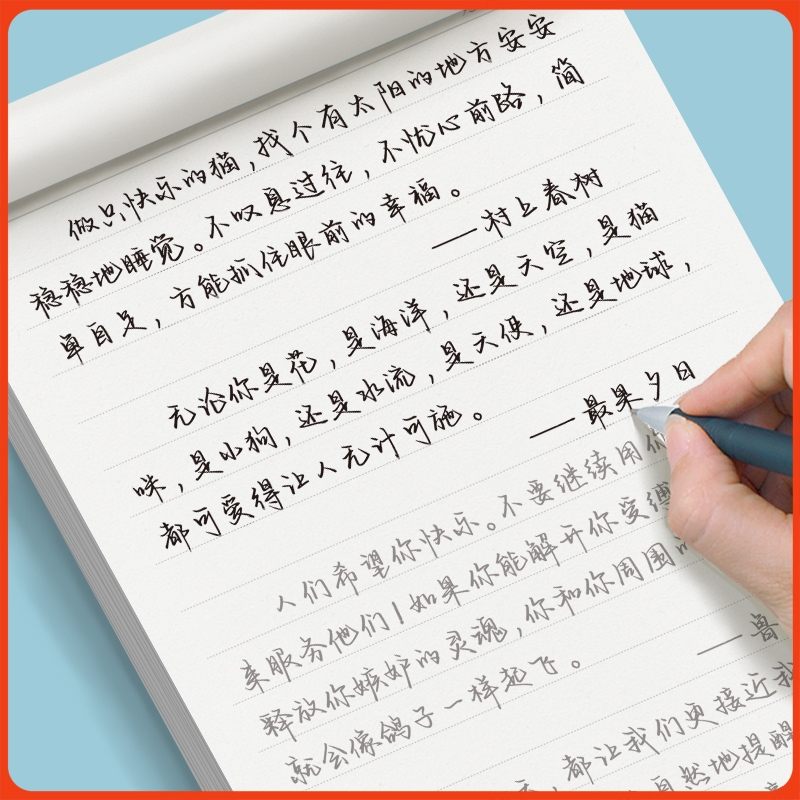 做只快乐的猫，找个有太阳的地方安安
稳稳地睡觉。不叹息过往，不忧心前路，简
单自足，方能抓住眼前的幸福。
——村上春树
无论你是花，是海洋，还是天空，是猫
咪，是小狗，还是水流，是天使，还是地球，
都可爱得让人无计可施。
——最果夕日
人们希望你快乐。不要继续用你
来服务他们！如果你能解开你爱缚
释放你嫉妒的灵魂，你和你周围的
就会像鸽子一样起飞。
——鲁
，都让我们更接近我
自然地提醒